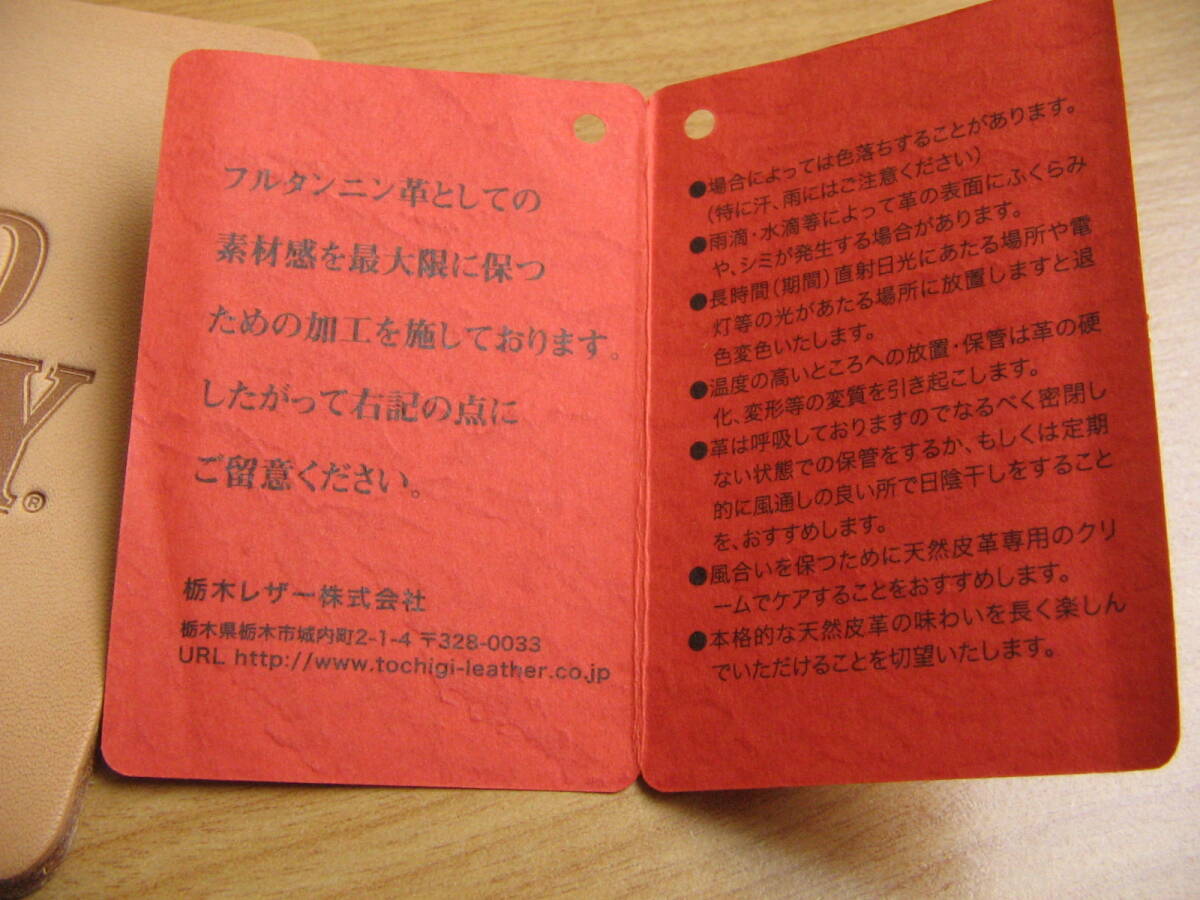 フルタンニン革としての
素材感を最大限に保つ
ための加工を施しております。
したがって右記の点に
ご留意ください。
栃木レザー株式会社
栃木県栃木市城内町2-1-4 〒328-0033
URL http://www.tochigi-leather.co.jp
●場合によっては色落ちすることがあります。
(特に汗、雨にはご注意ください)
●雨滴・水滴等によって革の表面にふくらみ
や、シミが発生する場合があります。
●長時間(期間)直射日光にあたる場所や電
灯等の光があたる場所に放置しますと退
色変色いたします。
●温度の高いところへの放置・保管は革の硬
化、変形等の変質を引き起こします。
●革は呼吸しておりますのでなるべく密閉し
ない状態での保管をするか、もしくは定期
的に風通しの良い所で日陰干しをすること
を、おすすめします。
●風合いを保つために天然皮革専用のクリ
ームでケアすることをおすすめします。
●本格的な天然皮革の味わいを長く楽しん
でいただけることを切望いたします。
Y®